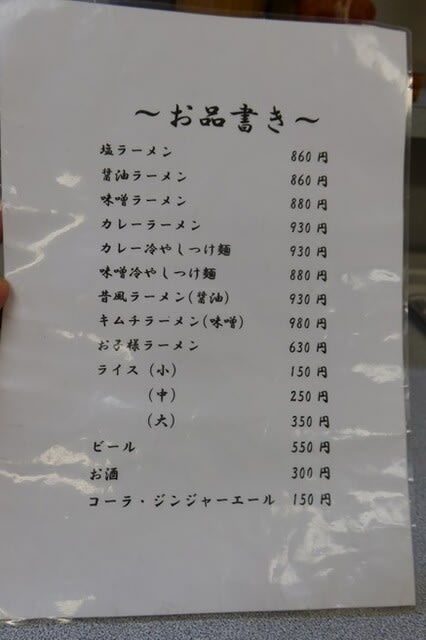 ～お品書き～
塩ラーメン 860円
醤油ラーメン 860円
味噌ラーメン 880円
カレーラーメン 930円
カレー冷やしつけ麺 930円
味噌冷やしつけ麺 880円
昔風ラーメン(醤油) 930円
キムチラーメン(味噌) 980円
お子様ラーメン 630円
ライス(小) 150円
(中) 250円
(大) 350円
ビール 550円
お酒 300円
コーラ・ジンジャーエール 150円